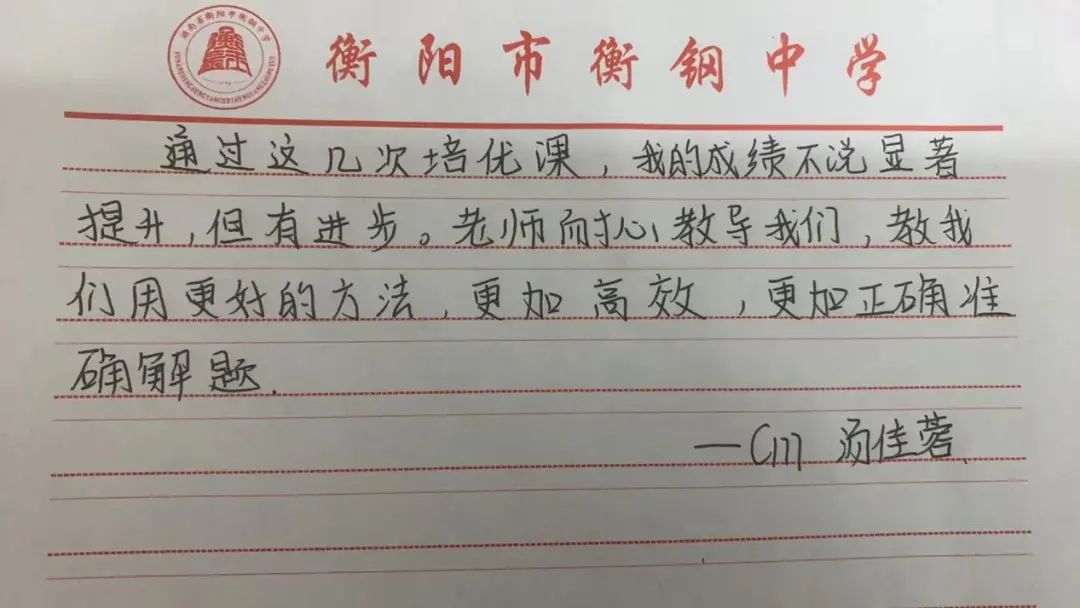 湖南省衡阳市衡钢中学
衡阳市衡钢中学
通过这几次培优课，我的成绩不说显著
提升，但有进步。老师耐心教导我们，教我
们用更好的方法，更加高效，更加正确准
确解题.
—C111 汤佳蓉.